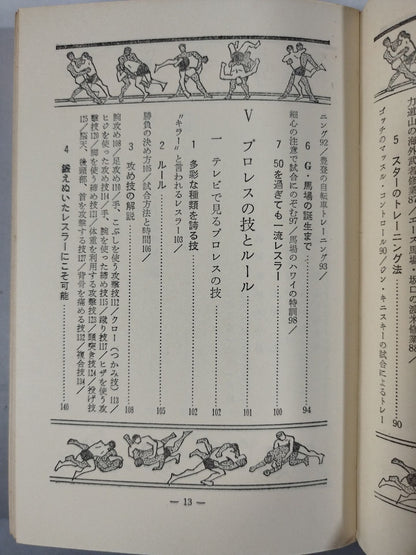 力道山の海外武者修業85／馬場・坂口の渡米修業88／
5 スターのトレーニング法 90
ゴッチのマッスル・コントロール90／ジン・キニスキーの試合によるトレー
ニング92／豊登の自転車トレーニング93／
6 G・馬場の誕生まで 94
細心の注意で試合にのぞむ97／馬場のハワイの特訓98／
7 50を過ぎても一流レスラー 100
V プロレスの技とルール 101
一 テレビで見るプロレスの技 102
1 多彩な種類を誇る技 102
“キラー”と言われるレスラー103／
2 ルール 105
勝負の決め方105／試合方法と時間106／
3 攻め技の解説 108
腕攻め108／足攻め110／手、こぶしを使う攻撃技112／クロー（つかみ技）113／
ヒジを使った攻め技114／手、腕を使った締め技115／蹴り技117／ヒザを使う攻
撃技120／脚を使う締め技121／体重を利用する攻撃技123／頭突き技124／投げ技
125／脳天、後頭部、首を攻撃する技127／背骨を痛める技132／複合技134／
4 鍛えぬいたレスラーにこそ可能 140
— 13 —